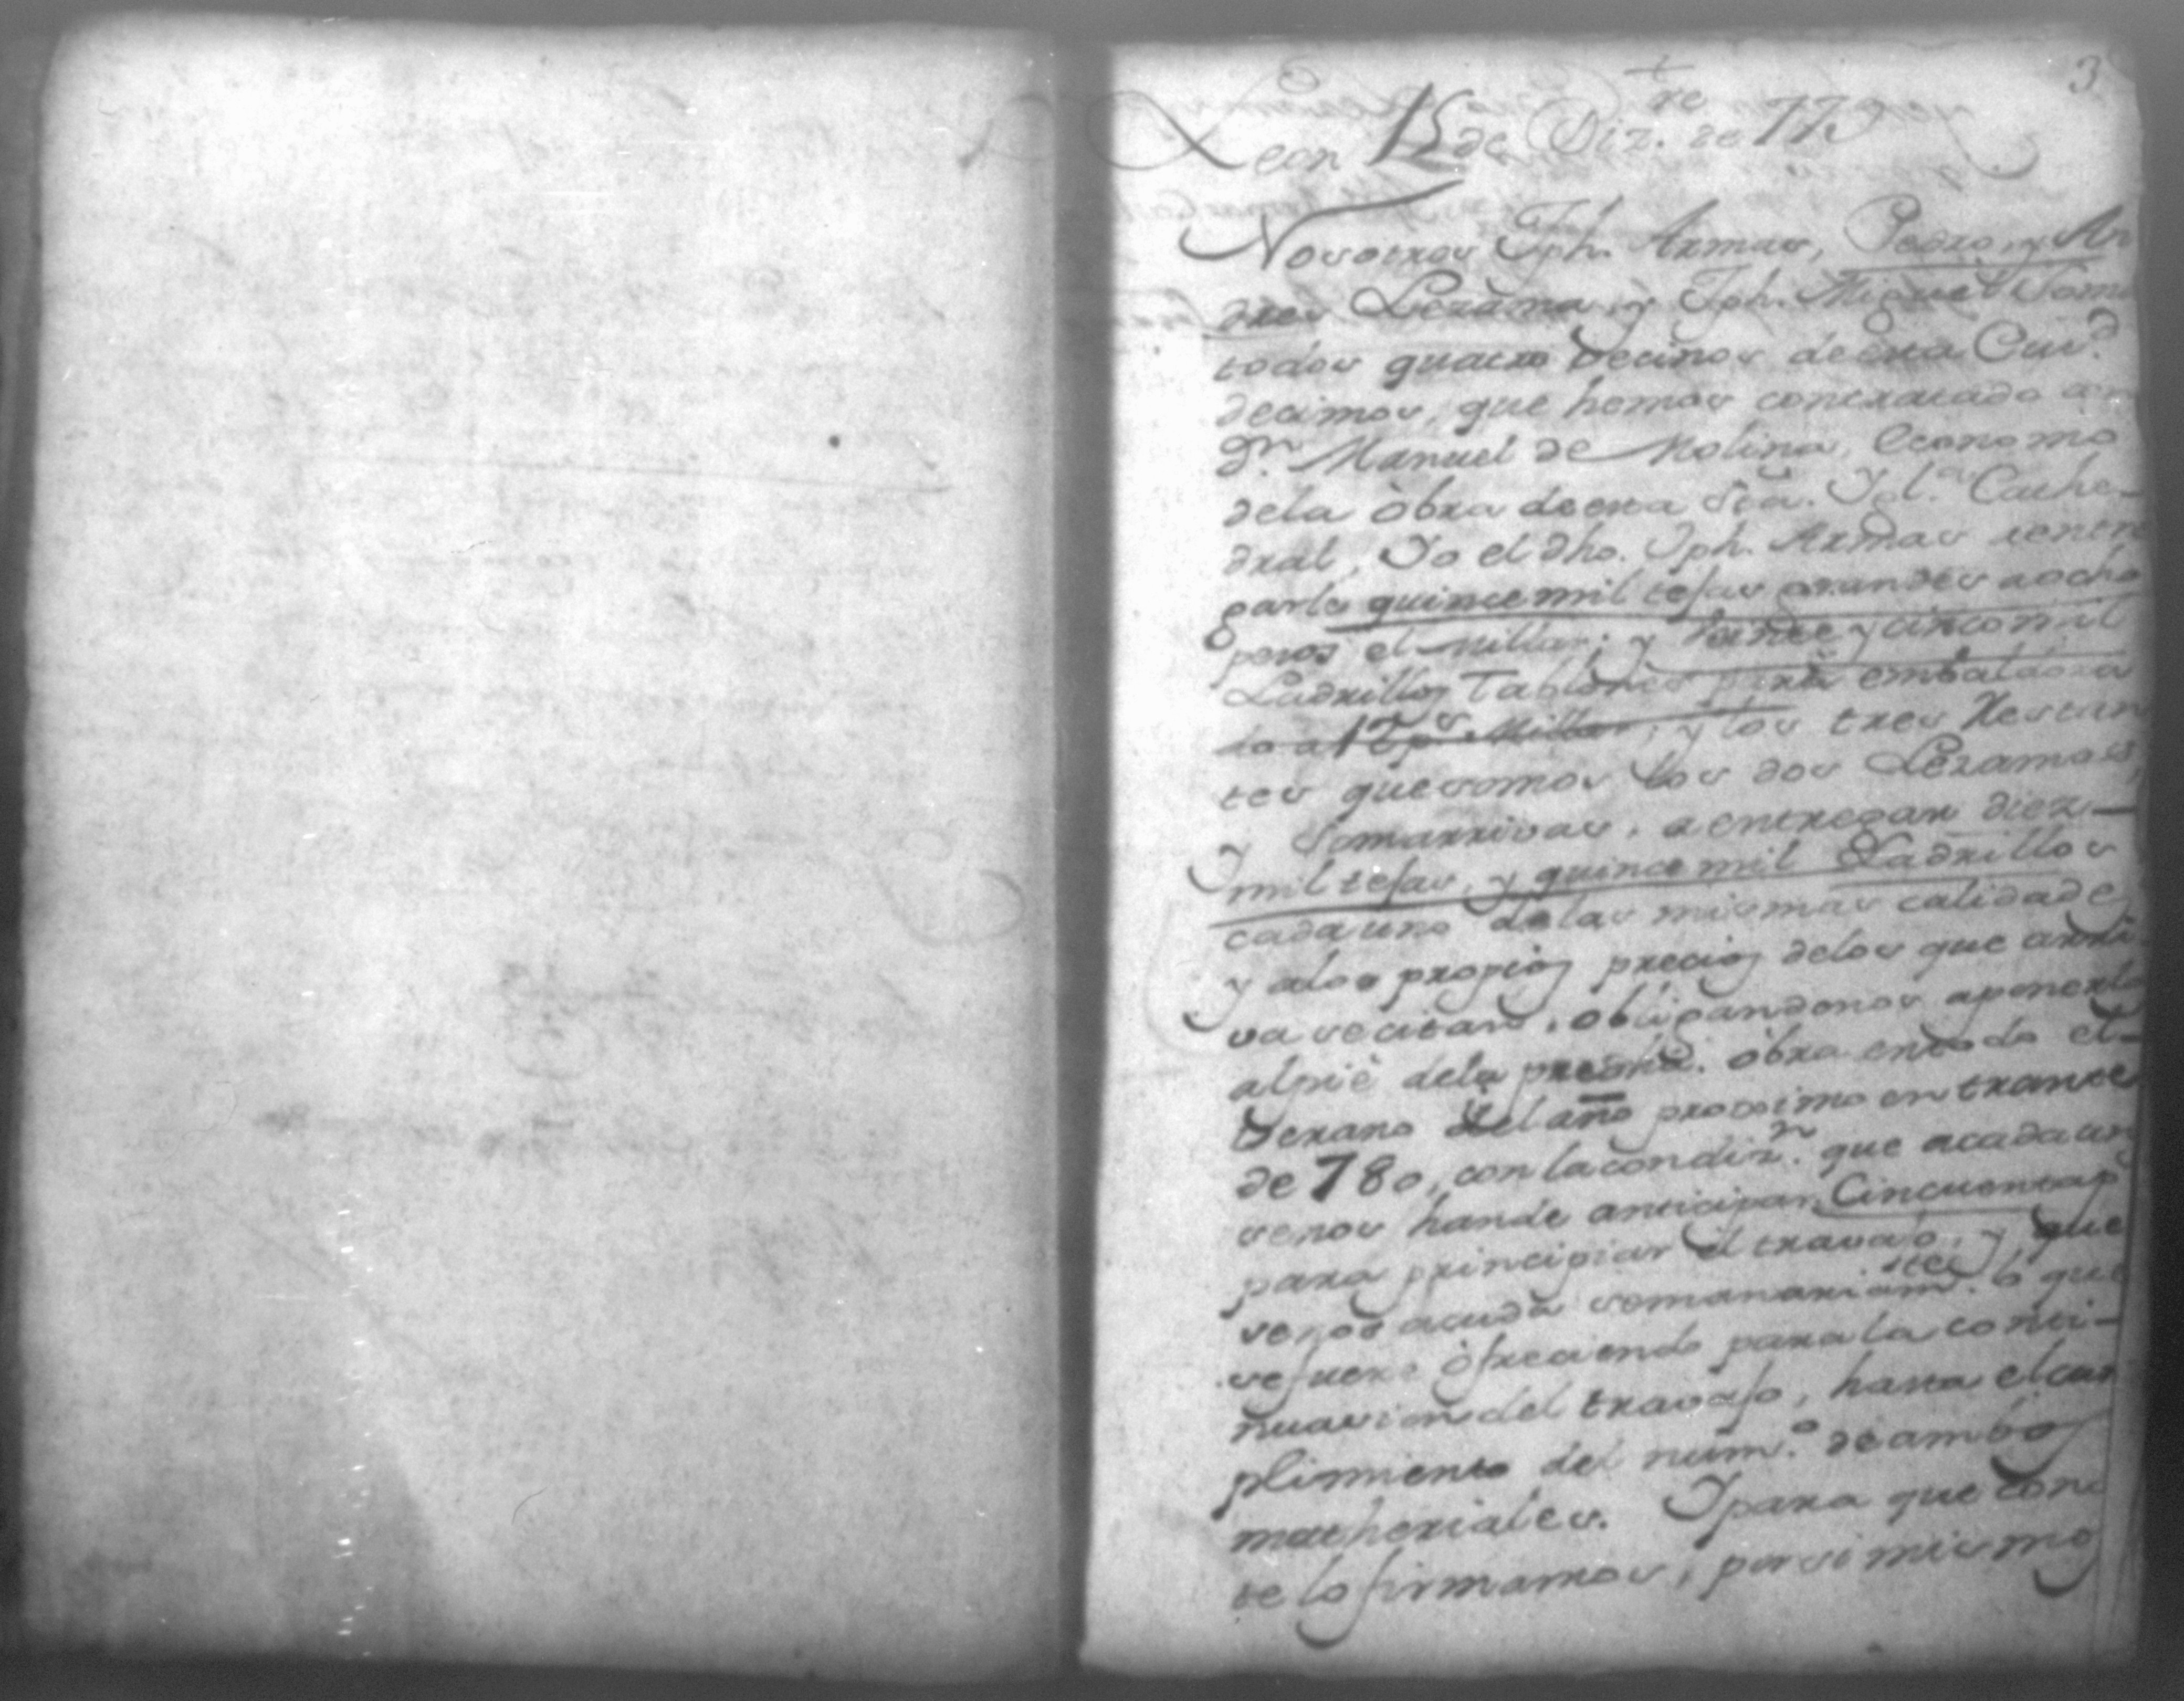 3
Leon 15 de Diz.re de 779
Nosotros Jph. Armas, Pedro, y An
dres Lezama, y Jph. Miguel Soma
todos quatro Vecinos de esta Ciu.d
decimos, que hemos contratado con
Dn. Manuel de Molina, Economo
dela òbra de esta Sta. Ygl.a Cathe-
dral, Yo el dho. Jph. Armas entre
garle quince mil tejas grandes a ocho
pesos el millar; y veinte y cinco mil
Ladrillos Tablones para embaldoza
do a 12 ps. Millar; y los tres Restan
tes que somos los dos Lezamas,
y Somarrivas, a entregar diez-
mil tejas, y quince mil Ladrillos
cada uno delas mismas calidades
y alos propios precios delos que arri
va se citaro, obligandonos aponerlo
alpiè dela predha. òbra en todo el-
Verano del año proximo entrante
de 780, con la condiz.n que acada un
senos hande anticipar Cincuenta p
para principiar el travajo, y, que
senos acuda semanariam.te lo que
sefuere òfreciendo para la conti-
nuasion del travajo, hasta el cum
plimiento del num.o de ambos
matheriales. Y para que cons
te lo firmamos, por si mismo